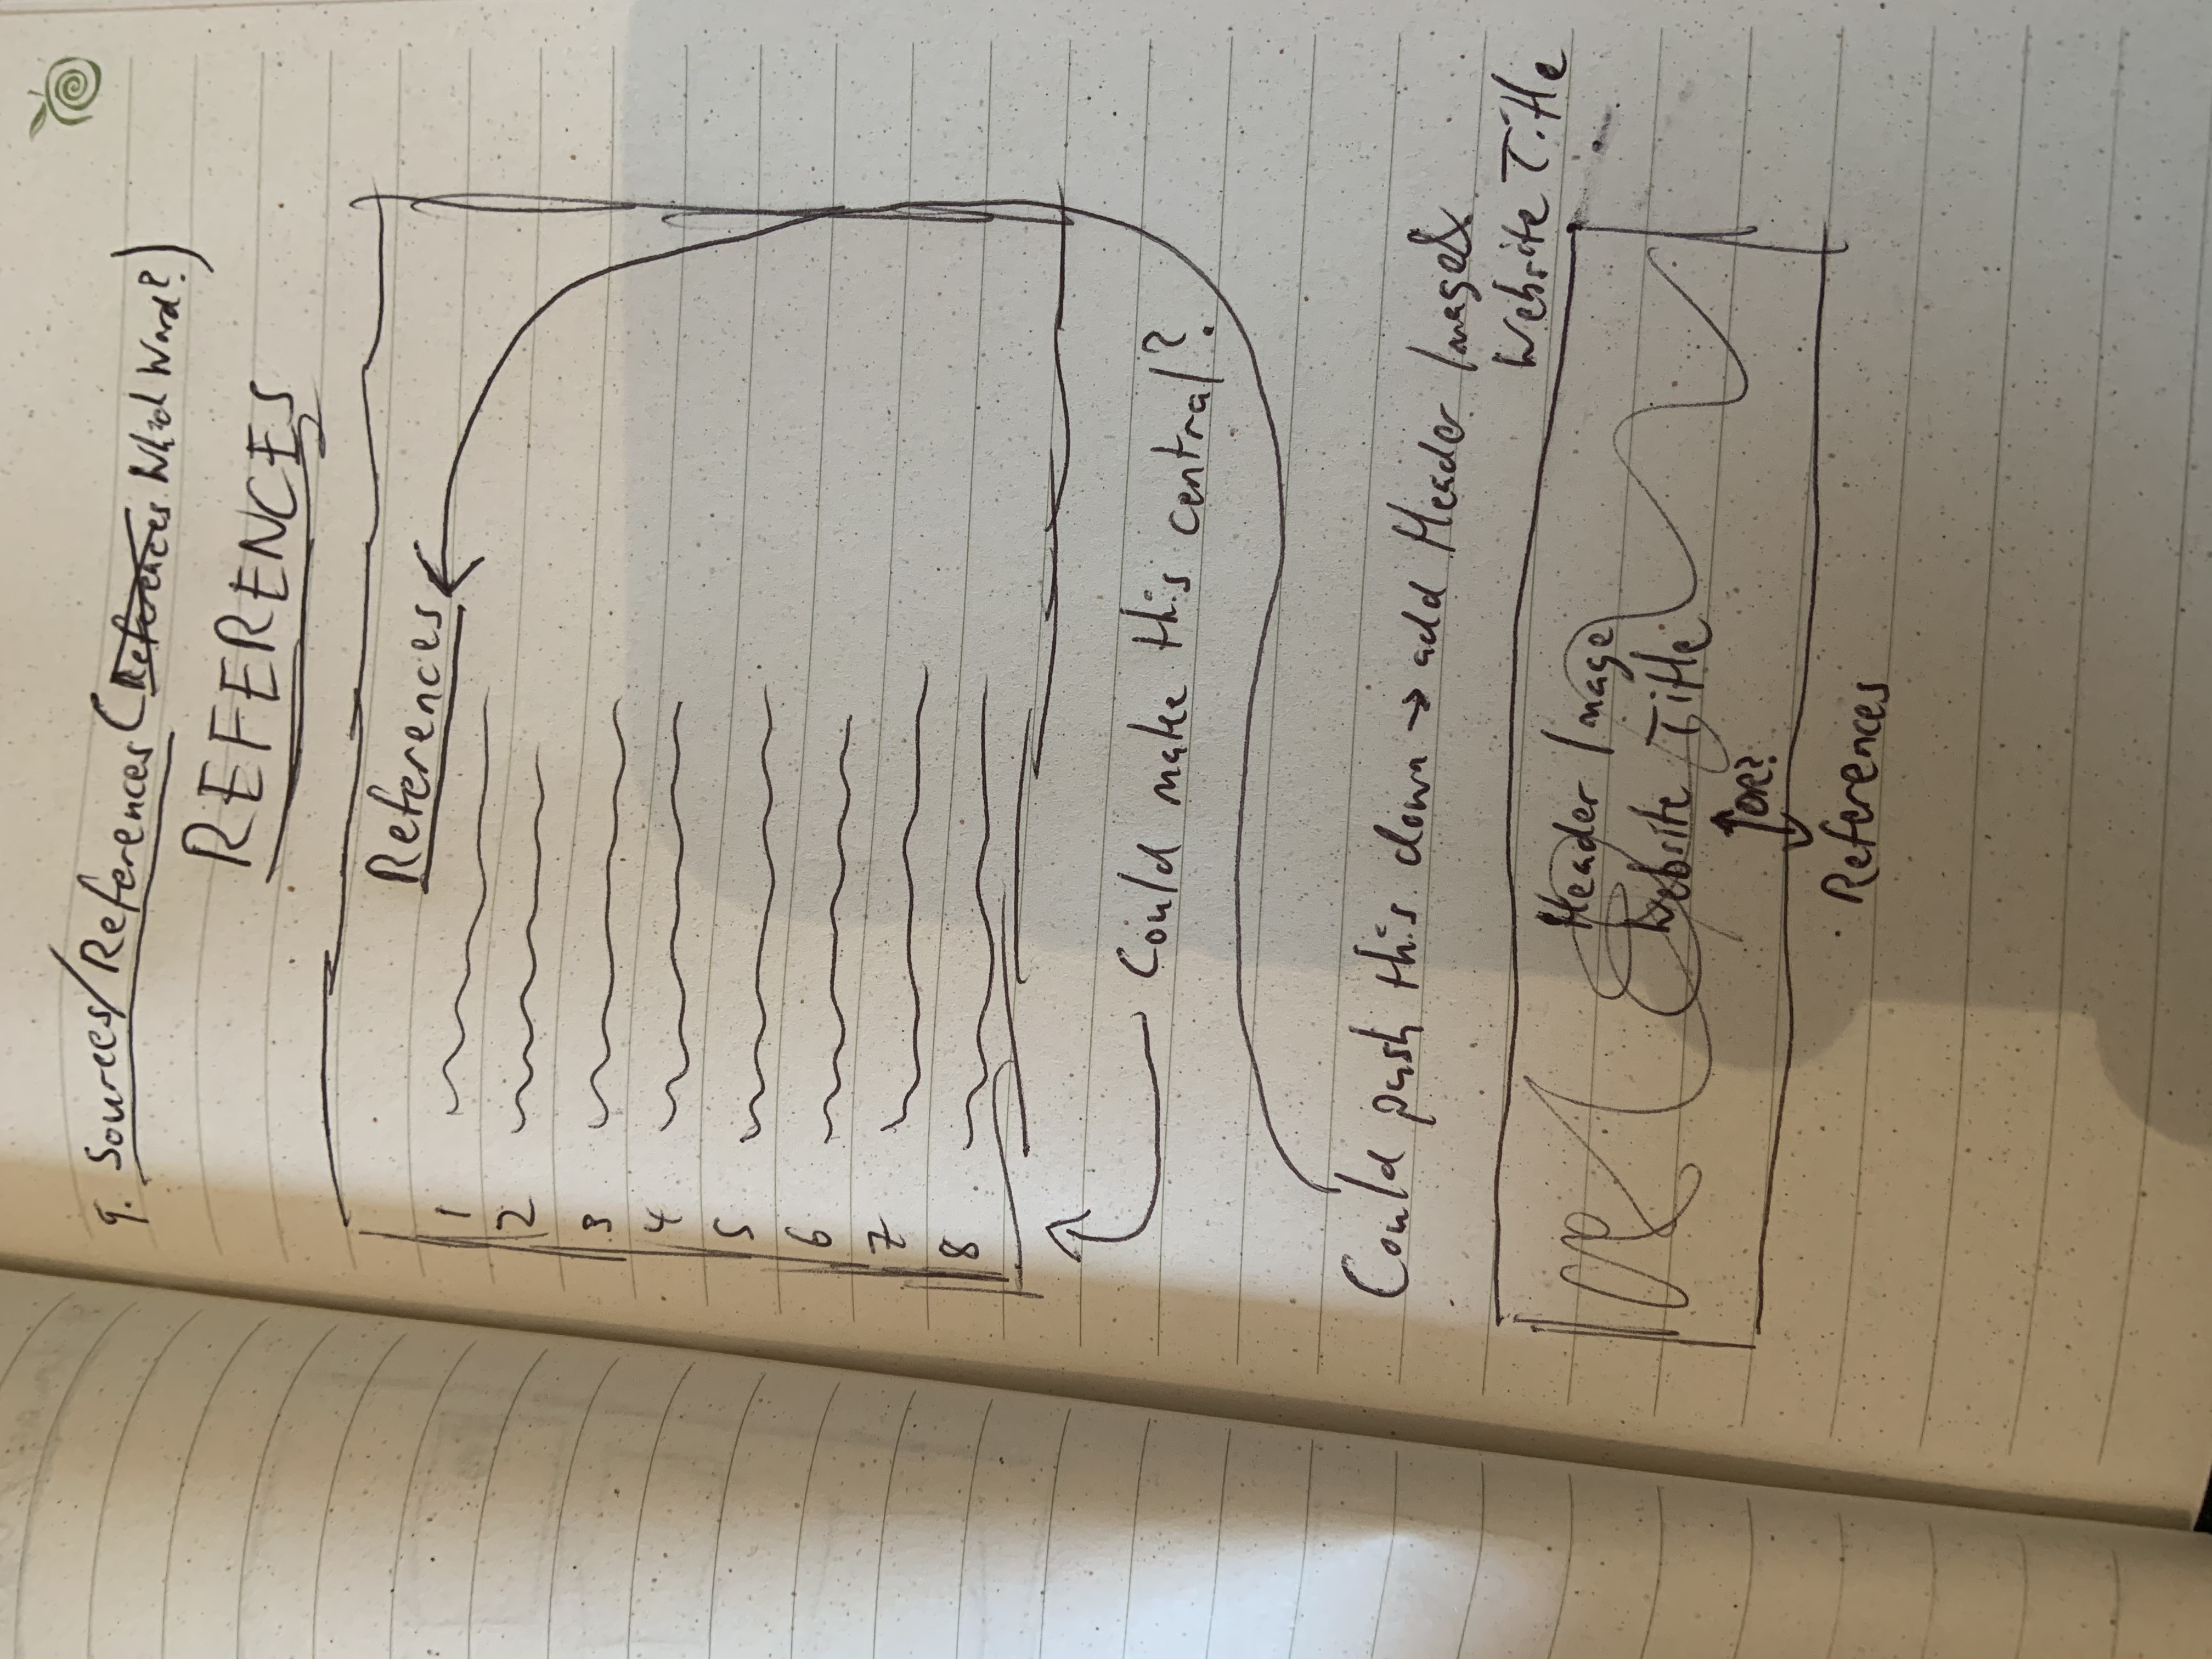 9. Sources/References (References Which Word?)
REFERENCES
References
1
2
3
4
5
6
7
8
Could make this central?
Could push this down → add Header Image &
Website Title
Header Image
Website Title
OR?
References